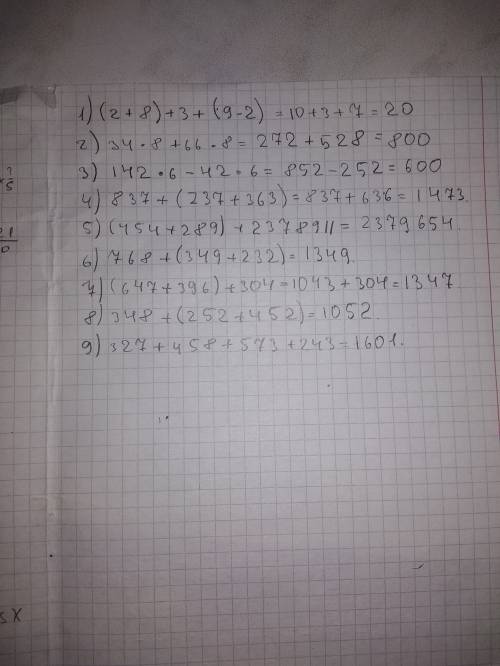 1) (2+8)+3+(9-2) = 10+3+7=20
2) 34·8+66·8=272+528=800
3) 142·6-42·6=852-252=600
4) 837+(237+363)=837+636=1473.
5) (454+289)+2378911=2379654.
6) 768+(349+232)=1349.
7) (647+396)+304=1043+304=1347.
8) 348+(252+452)=1052.
9) 327+458+573+243=1601.